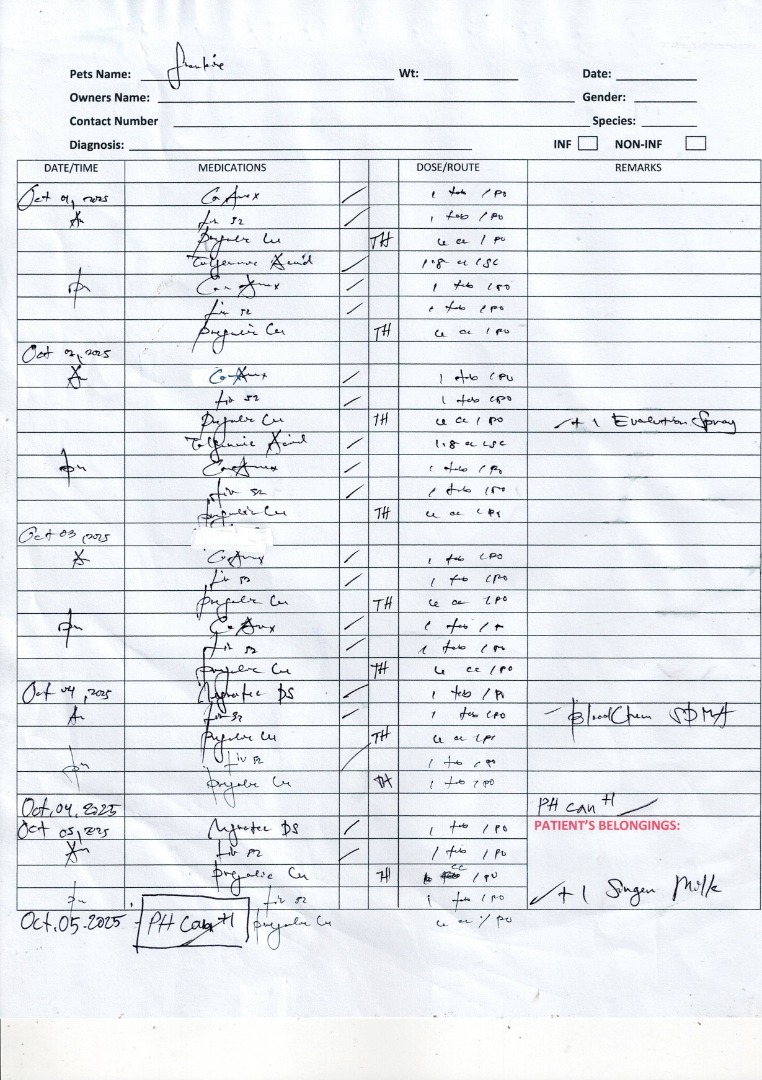 Pets Name: Frankie Wt: Date:
Owners Name: Gender:
Contact Number Species:
Diagnosis: INF NON-INF
DATE/TIME MEDICATIONS DOSE/ROUTE REMARKS
Oct 01, 2025 CoAmox 1 tab / PO
Am Liv 52 1 tab / PO
TH cc / PO
Tolfenamic Acid 1.8 cc / SC
pm CoAmox 1 tab / PO
Liv 52 1 tab / PO
TH cc / PO
Oct 02, 2025
Am CoAmox 1 tab / PO
Liv 52 1 tab / PO
TH cc / PO + 1 Evaluation Spray
Tolfenamic Acid 1.8 cc / SC
pm CoAmox 1 tab / PO
Liv 52 1 tab / PO
TH cc / PO
Oct 03, 2025
Am CoAmox 1 tab / PO
Liv 52 1 tab / PO
TH cc / PO
pm CoAmox 1 tab /
Liv 52 1 tab / PO
TH cc / PO
Oct 04, 2025 DS 1 tab / PO
Am Liv 52 1 tab / PO - BloodChem SDMA
TH cc / PO
pm Liv 52 1 tab / PO
TH 1 tab / PO
Oct. 04. 2025 PH can #1
Oct 05, 2025 DS 1 tab / PO PATIENT'S BELONGINGS:
Am Liv 52 1 tab / PO
TH cc / PO
pm Liv 52 1 tab / PO + 1 Milk
Oct. 05. 2025 - PH can #1 cc / PO